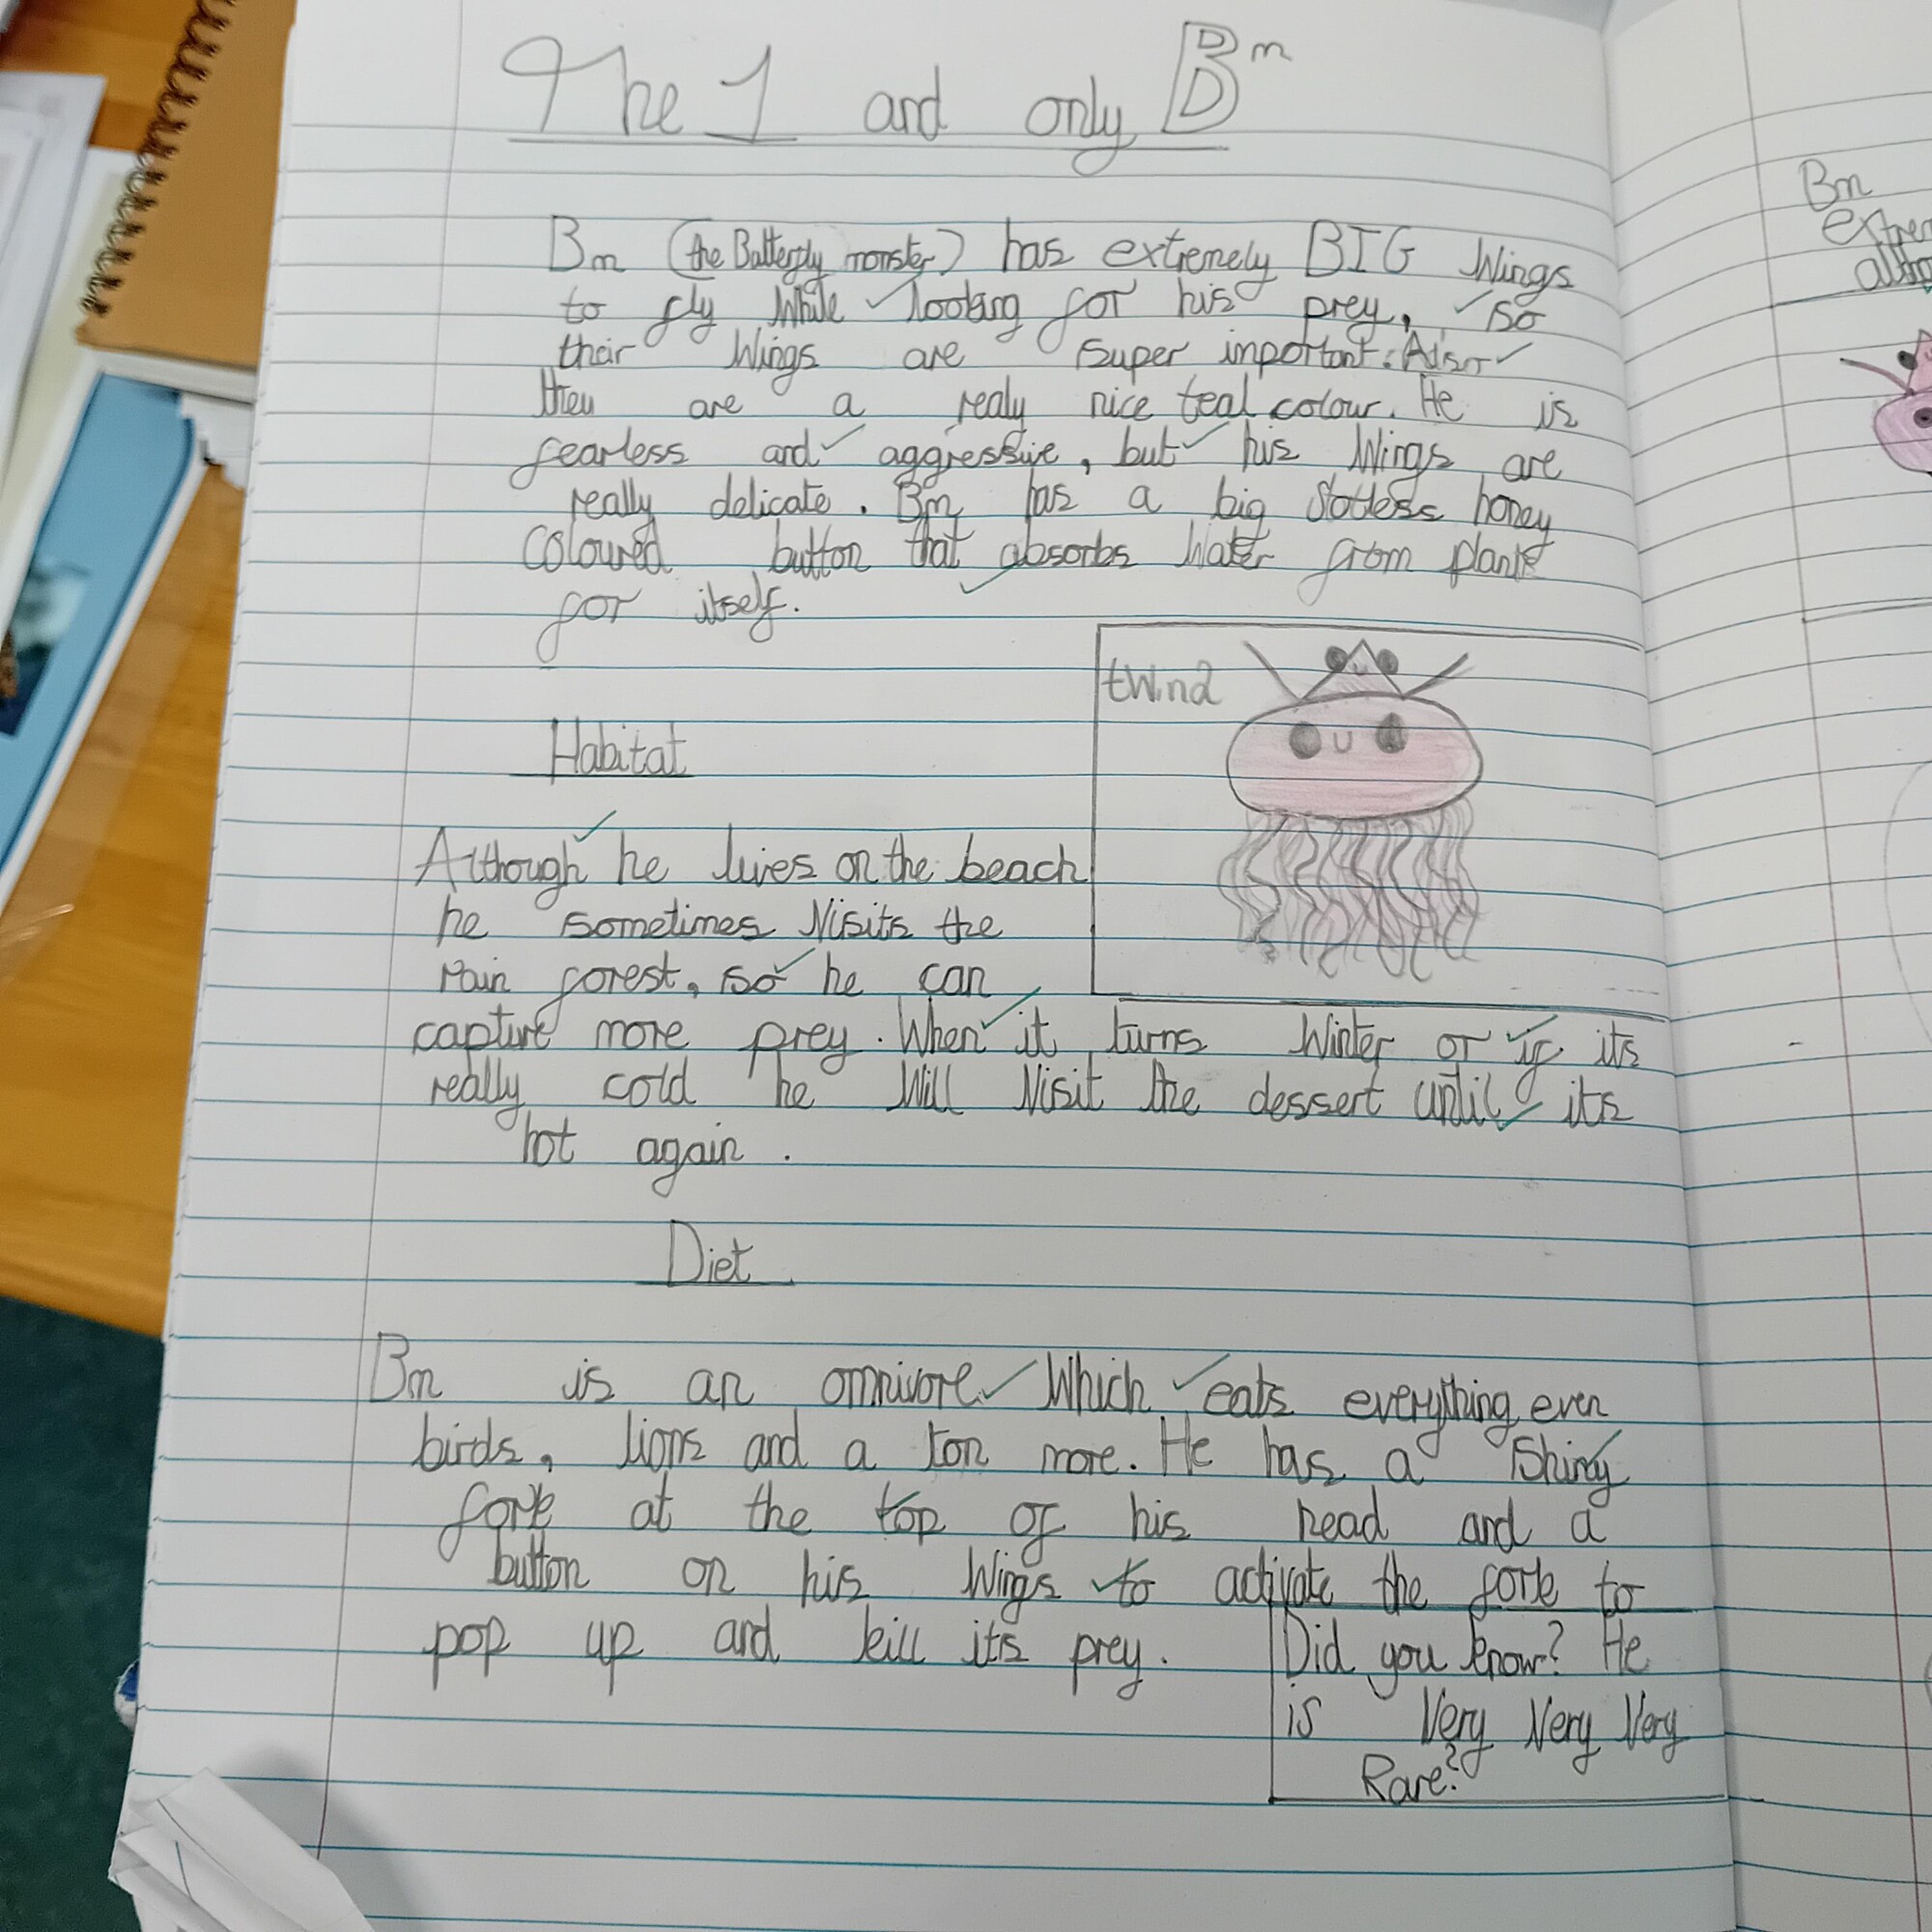 The 1 and only Bm
Bm (the Butterfly monster) has extremely BIG wings
to fly while looking for his prey, so
their wings are super important. Also
they are a realy nice teal colour. He is
fearless and aggressive, but his wings are
really delicate. Bm has a big honey
coloured button that absorbs water from plants
for itself.
twin 2
Habitat
Although he lives on the beach
he sometimes visits the
rain forest, so he can
capture more prey. When it turns winter or if its
really cold he will visit the dessert until its
hot again.
Diet
Bm is an omnivore which eats everything even
birds, lions and a ton more. He has a shiny
fork at the top of his head and a
button on his wings to activate the fork to
pop up and kill its prey.
Did you know? He
is very very very
Rare?
Bm